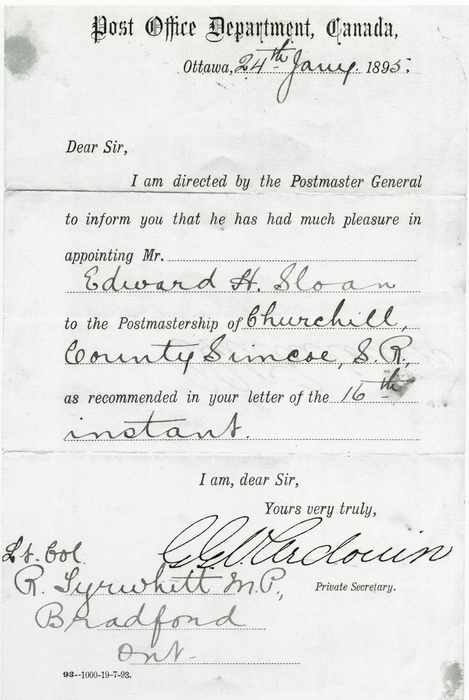 Post Office Department, Canada,
Ottawa, 24th Jany. 1895.
Dear Sir,
I am directed by the Postmaster General
to inform you that he has had much pleasure in
appointing Mr.
Edward H. Sloan
to the Postmastership of Churchill,
County Simcoe, S. R.,
as recommended in your letter of the 16th
instant.
I am, dear Sir,
Yours very truly,
Private Secretary.
Lt. Col.
R. Tyrwhitt M.P.,
Bradford
Ont.
93--1000-19-7-93.